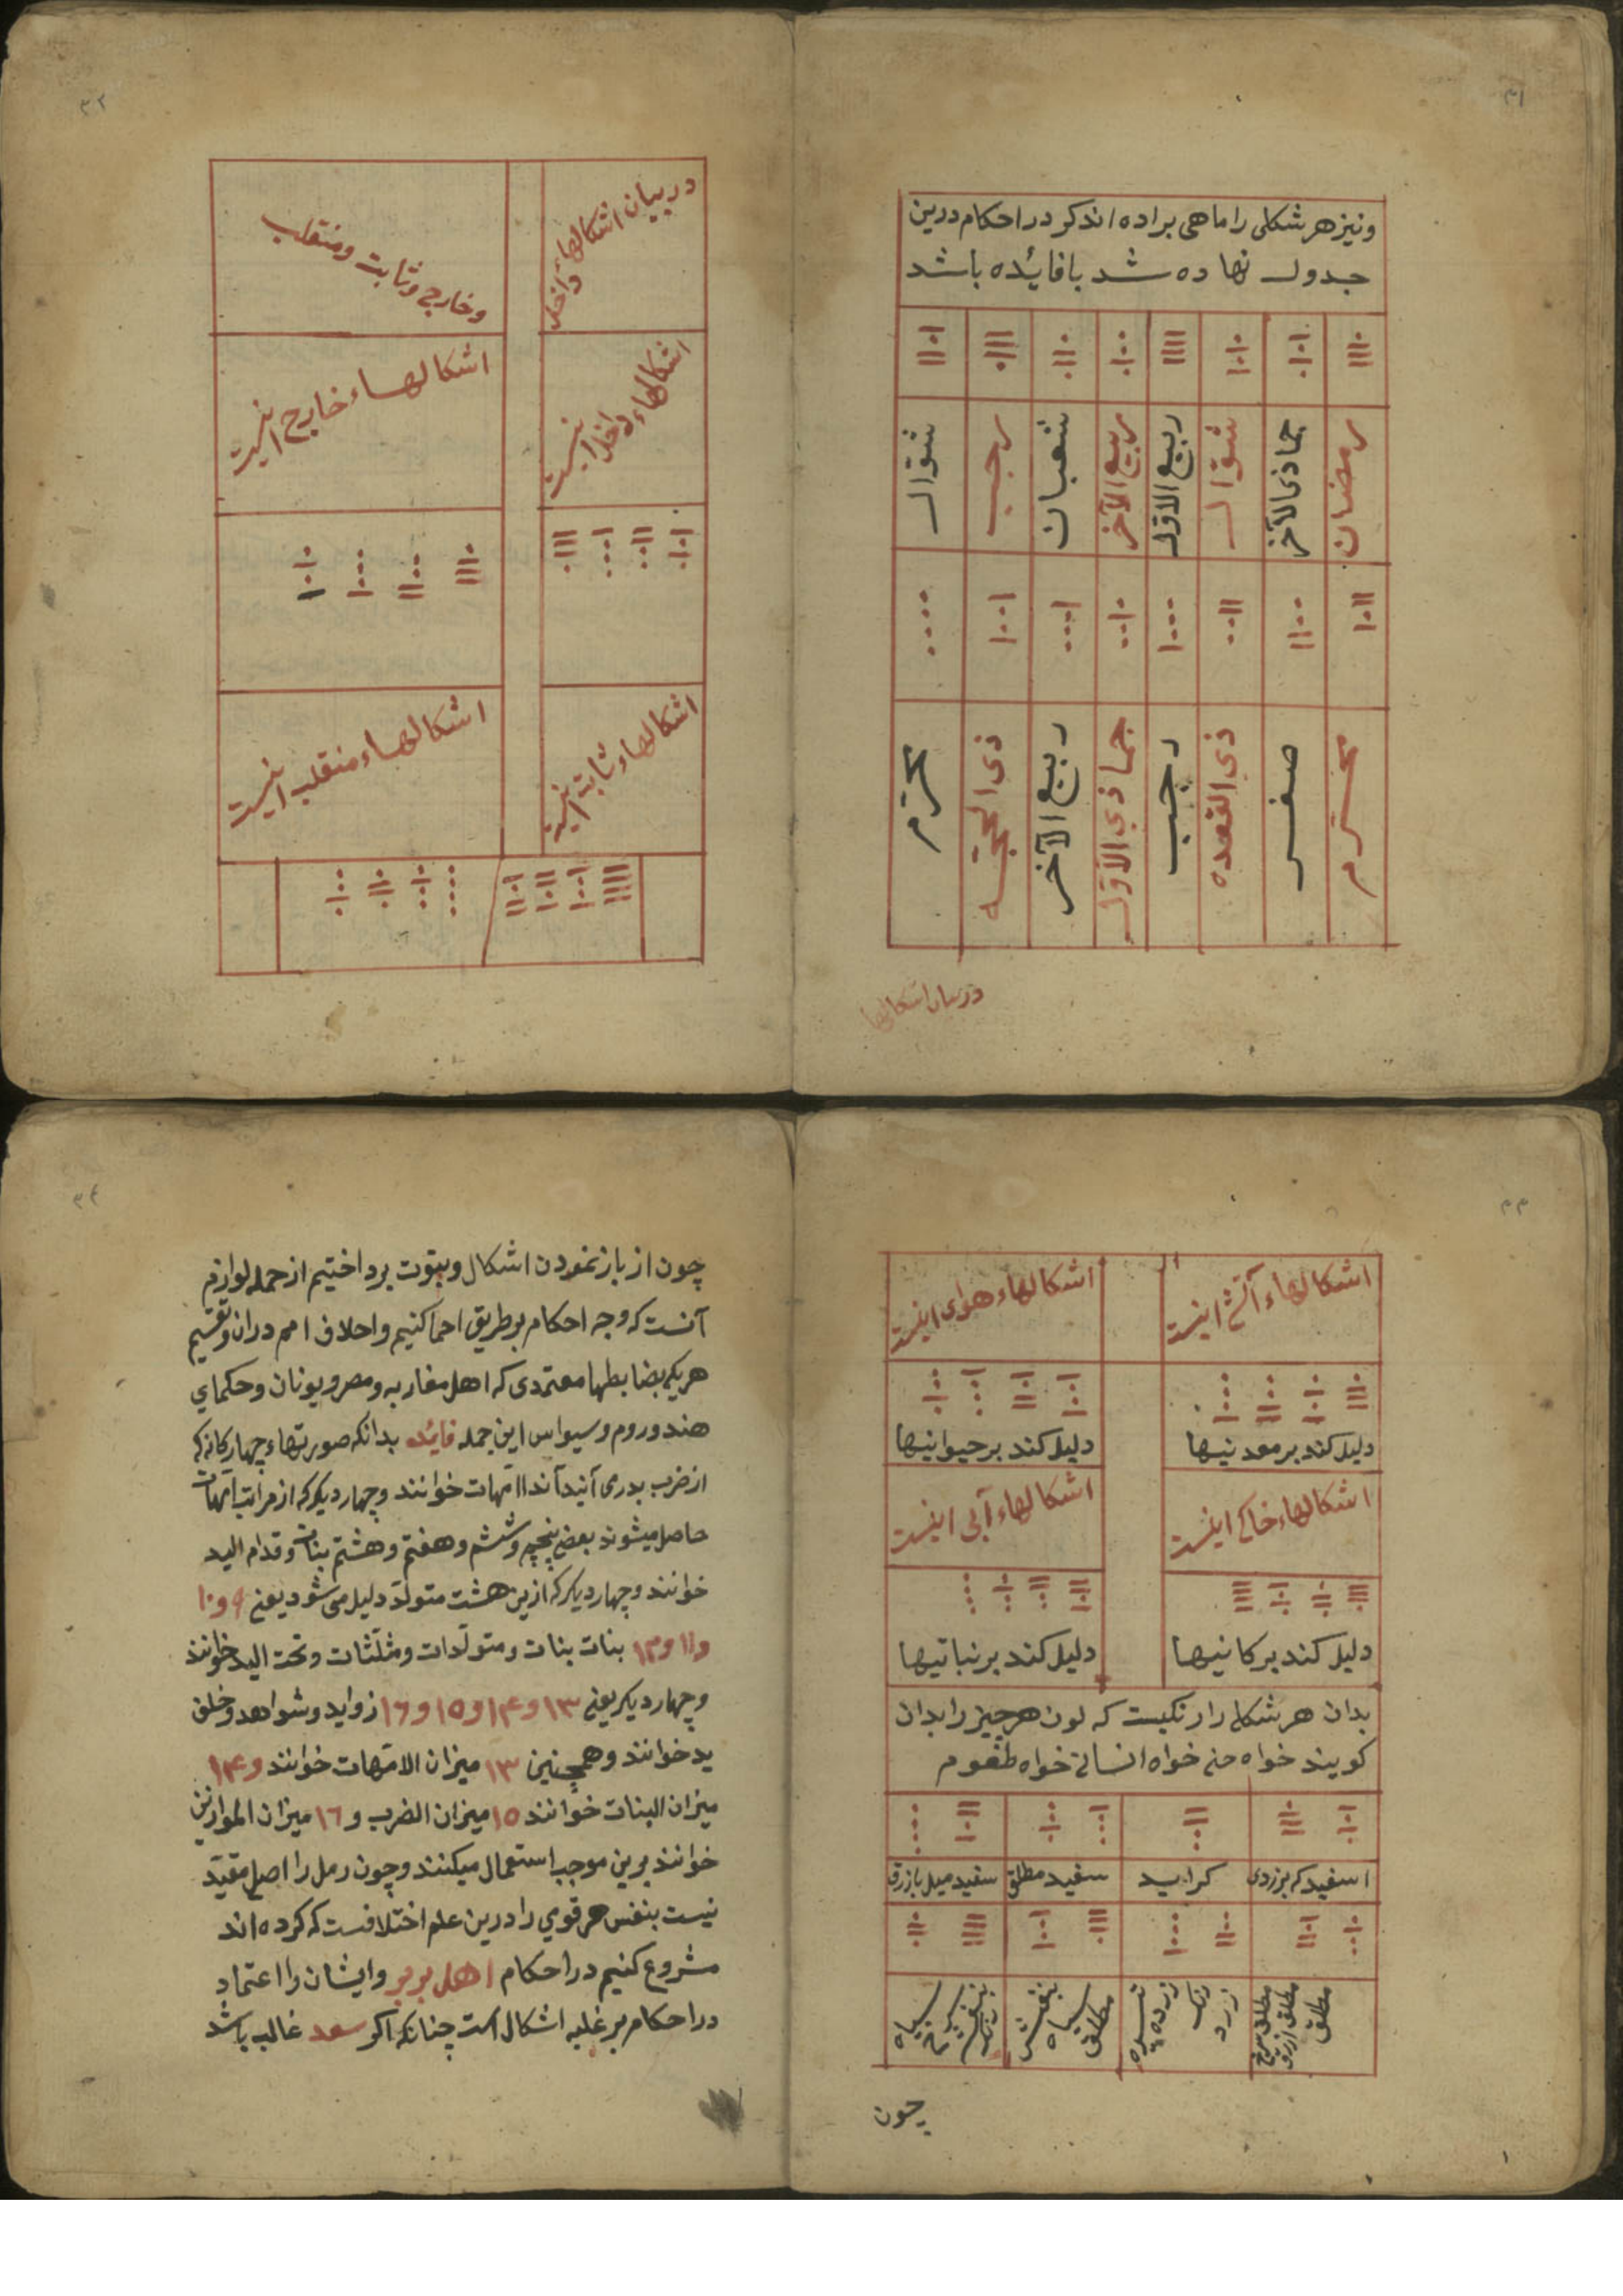 ٣١
ونیز هر شکلی را ماهی براده اند کر در احکام درین
جدول نهاده شد با فائده باشد
رمضان جماذی الآخر شوّال ربیع الاوّل ربیع الآخر شعبان رجب شوّال
محرّم صفر ذی القعده رجب جماذی الاوّل ربیع الآخر ذی الحجّه محرّم
در بیان اشکالها
٣٢
در بیان اشکالهاء داخل
وخارجی وثابت ومنقلب
اشکالهاء داخل اینست
اشکالهاء خارج اینست
اشکالهاء ثابت اینست
اشکالهاء منقلب اینست
٣٣
اشکالهاء آتشی اینست
اشکالهاء هوای اینست
دلیل کند بر معدنیها
دلیل کند بر حیوانیها
اشکالهاء خاکی اینست
اشکالهاء آبی اینست
دلیل کند بر کانیها
دلیل کند بر نباتیها
بدان هر شکلی را رنکیست که لون هر چیز را بدان
کویند خواه جنی خواه انسانی خواه طعوم
اسفید که بزردی
سفید مطلق
سفید میل بازرق
مطلق
زرد
سیاه مطلق
بنفش
سیاه
چون
٣٤
چون از باز نمودن اشکال وبیوت برداختیم از جمله لوازم
آنست که وجه احکام بر طریق احما کنیم واحلاف امم دران وتقسیم
هر یکی بضابطها معتمدی که اهل مغاربه ومصر ویونان وحکمای
هند وروم وسیواس این جمله فائده بدانکه صورتهاء چهارکانه که
از ضرب بدری آیند آنداا امّهات خوانند وچهار دیکر که از مراتب امّهات
حاصل میشوند بعضی پنجم وششم وهفتم وهشتم بنات وقدام الید
خوانند وچهار دیکر که ازین هشت متولّد دلیل می شود یعنی ٩ و١٠
و١١ و١٢ بنات بنات ومتولّدات ومثلّثات وتحت الید خوانند
وچهار دیکر یعنی ١٣ و١۴ و١٥ و١٦ زواید وشواهد وخلق
ید خوانند وهمچنین ١٣ میزان الامّهات خوانند و١۴
میزان البنات خوانند ١٥ میزان الضرب و ١٦ میزان الموازین
خوانند برین موجب استعمال میکنند وچون رمل را اصلی مقیّد
نیست بنفس هر قوی را درین علم اختلافست که کرده اند
مشروع کنیم در احکام اهل بربر وایشان را اعتماد
در احکام بر غلبه اشکال است چنانکه اکر سعد غالب باشد